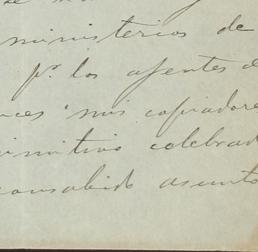 ministerios de
pr. los agentes d
ces mis copiadore
imitivo celebrad
consabido asunto